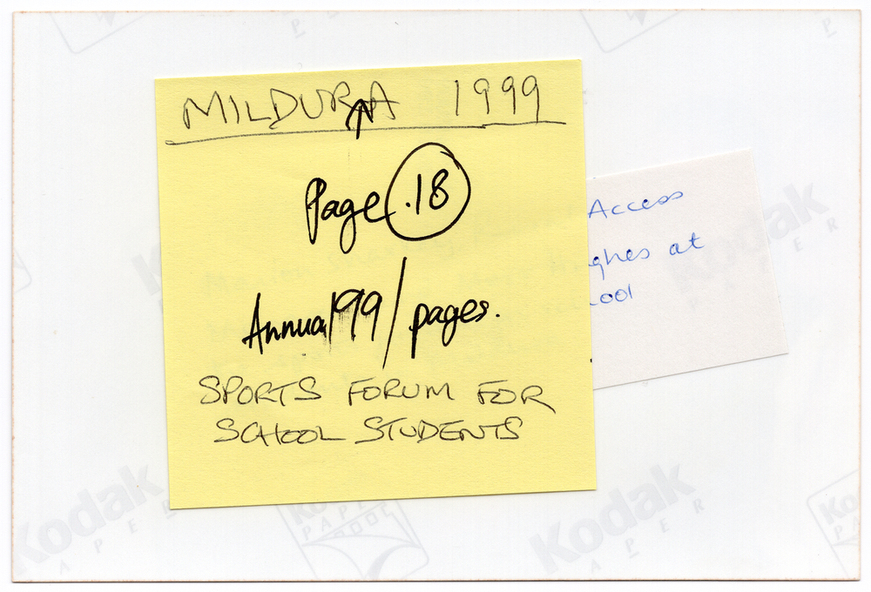 MILDURA 1999
Page .18
Annual 99 / pages.
SPORTS FORUM FOR
SCHOOL STUDENTS
Access
ghes at
ool
Kodak
PAPER
Kodak
PAPER
Kodak
PAPER
Kodak
PAPER